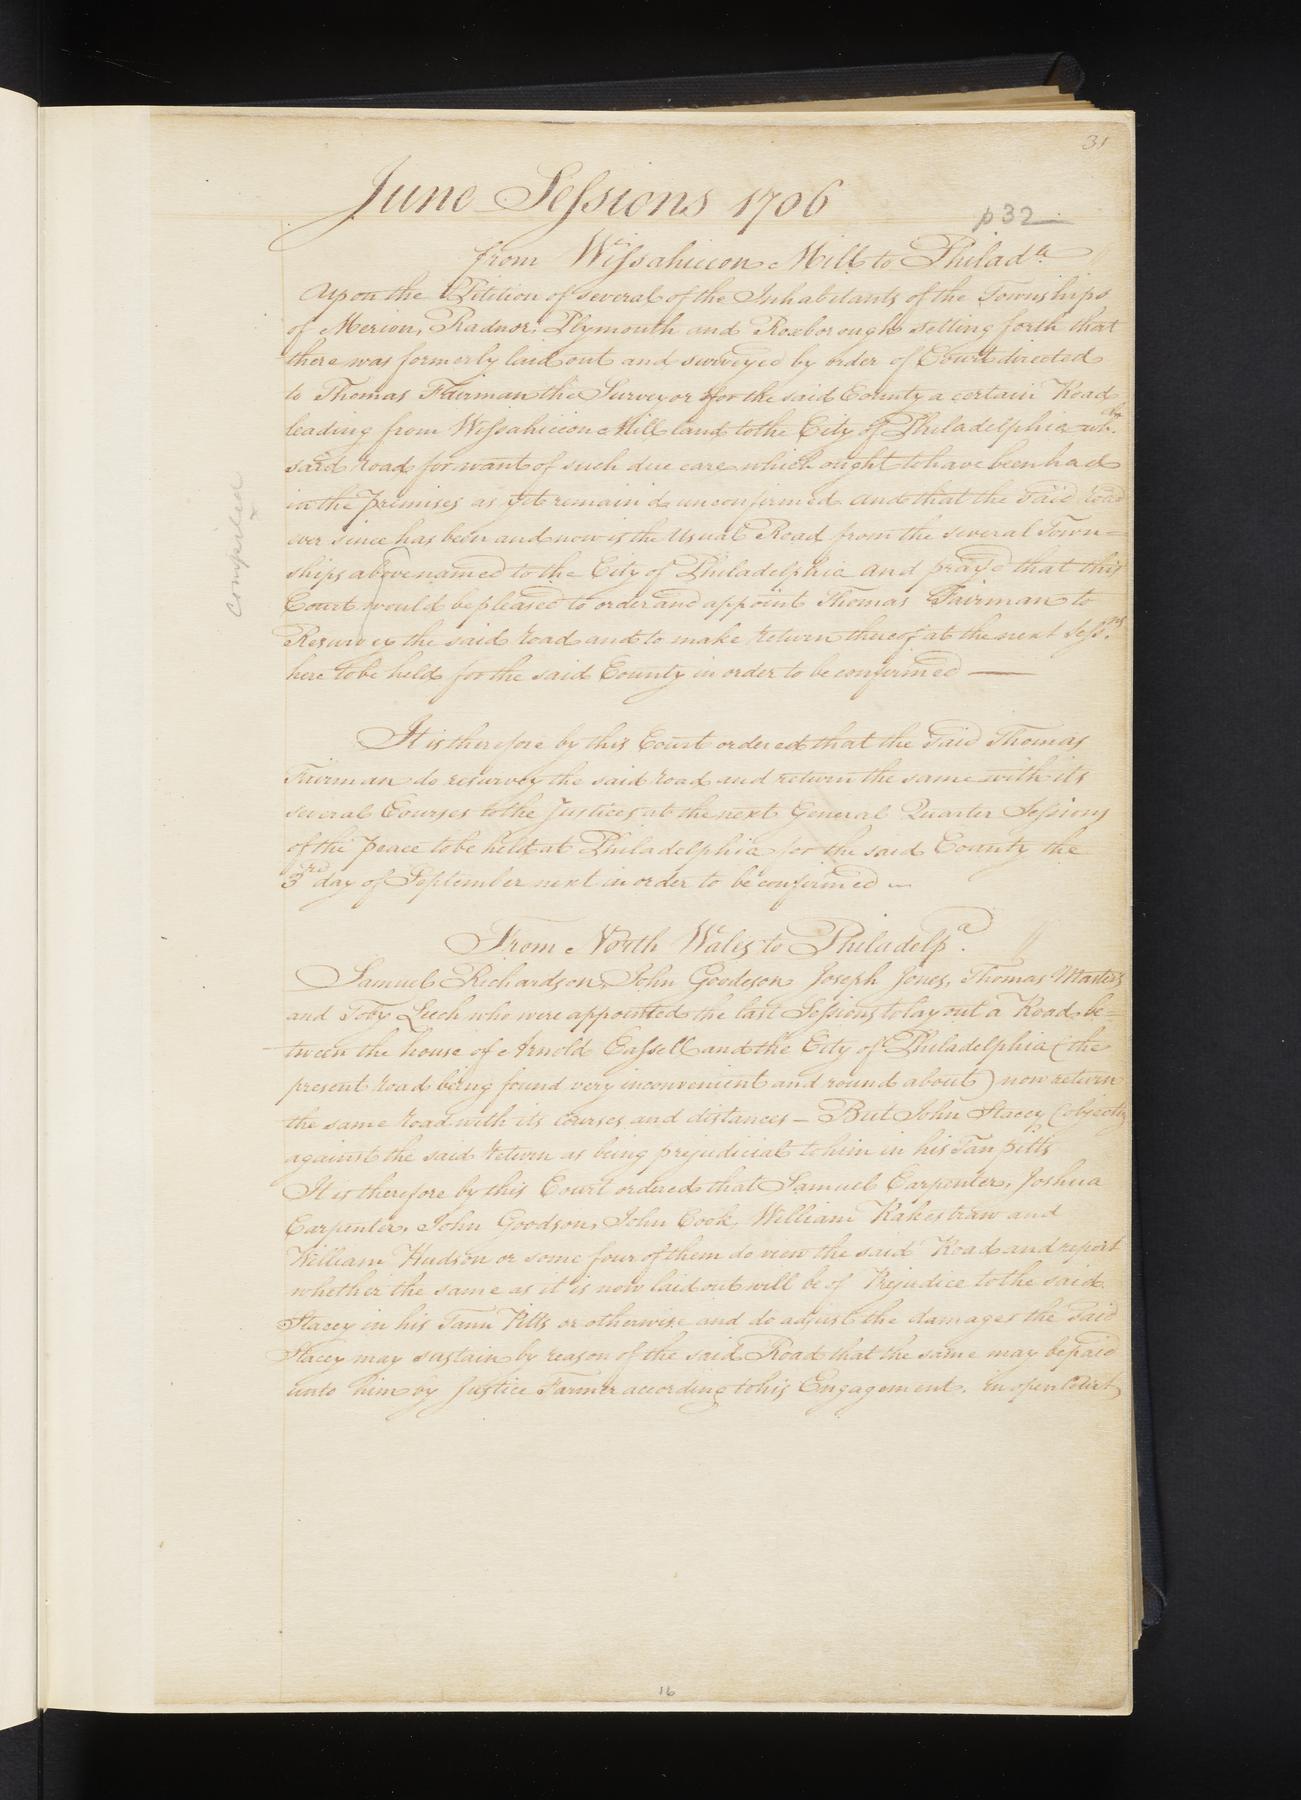 31
June Sessions 1706
p 32
from Wissahiccon Mill to Philad.a
Upon the Petition of several of the Inhabitants of the Townships
of Merion, Radnor, Plymouth and Roxborough setting forth that
there was formerly laid out and surveyed by order of Court directed
to Thomas Fairman the Surveyor for the said County a certain Road
leading from Wissahiccon Mill land to the City of Philadelphia wh.ch
said road for want of such due care which ought to have been had
in the premises as yet remain'd unconfirmed and that the said road
ever since has been and now is the Usual Road from the several Town=
ships above named to the City of Philadelphia and pray'd that this
Court would be pleased to order and appoint Thomas Fairman to
Resurvey the said road and to make return thereof at the next Sess.ns
here to be held for the said County in order to be confirmed —
compiled
It is therefore by this Court ordered that the said Thomas
Fairman do resurvey the said road and return the same with its
several Courses to the Justices at the next General Quarter Sessions
of the peace to be held at Philadelphia for the said County the
3rd day of September next in order to be confirmed ~
From North Wales to Philadelp.a
Samuel Richardson, John Goodson Joseph Jones, Thomas Masters
and Toby Leech who were appointed the last Sessions to lay out a Road be=
tween the house of Arnold Cassell and the City of Philadelphia (the
present road being found very inconvenient and round about) now return
the same road with its courses and distances — But John Stacey objects
against the said return as being prejudicial to him in his Tan pitts
It is therefore by this Court ordered that Samuel Carpenter, Joshua
Carpenter, John Goodson, John Cook, William Rakestraw and
William Hudson or some four of them do view the said Road and report
whether the same as it is now laid out will be of Prejudice to the said
Stacey in his Tann Pitts or otherwise and do adjust the damages the said
Stacey may sustain by reason of the said Road that the same may be paid
unto him by Justice Farmer according to his Engagement. in open Court
16